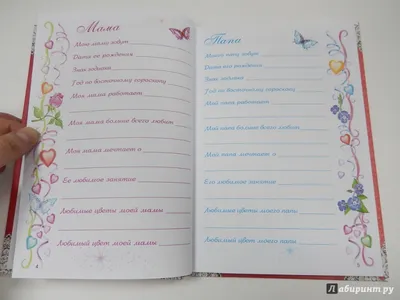 Мама
Мою маму зовут
Дата ее рождения
Знак зодиака
Год по восточному гороскопу
Моя мама работает
Моя мама больше всего любит
Моя мама мечтает о
Ее любимое занятие
Любимые цветы моей мамы
Любимый цвет моей мамы
Папа
Моего папу зовут
Дата его рождения
Знак зодиака
Год по восточному гороскопу
Мой папа работает
Мой папа больше всего любит
Мой папа мечтает о
Его любимое занятие
Любимые цветы моего папы
Любимый цвет моего папы
Лабиринт.ру